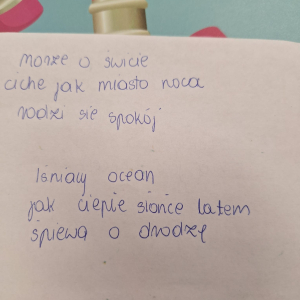 morze o świcie
ciche jak miasto nocą
rodzi się spokój
lśniący ocean
jak ciepłe słońce latem
śpiewa o drodze